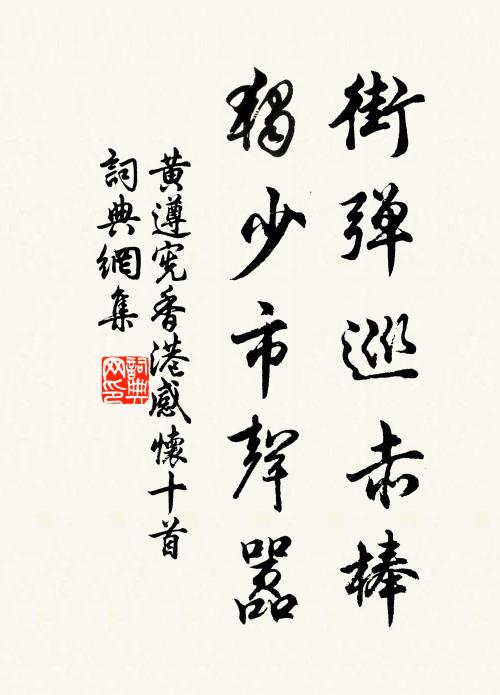 街弹巡赤棒
獨少市聲囂
黃遵宪香港感懷十首
詞典網集
詞典
网印